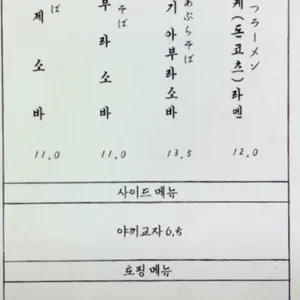 つラーメン
케(돈코츠)라멘
12,0
あぶらそば
기아부라소바
13,5
そば
부라소바
11,0
ば
제소바
11,0
사이드 메뉴
야끼교자 6,5
토핑 메뉴